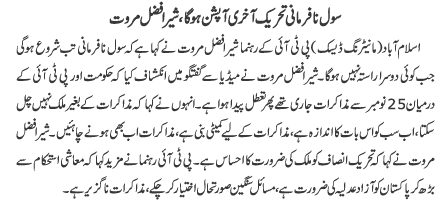 سول نافرمانی تحریک آخری آپشن ہوگا، شیر افضل مروت
اسلام آباد (مانیٹرنگ ڈیسک) پی ٹی آئی کے رہنما شیر افضل مروت نے کہا ہے کہ سول نافرمانی تب شروع ہوگی
جب کوئی دوسرا راستہ نہیں ہوگا۔ شیر افضل مروت نے میڈیا سے گفتگو میں انکشاف کیا کہ حکومت اور پی ٹی آئی کے
درمیان 25 نومبر سے مذاکرات جاری تھے پھر تعطل پیدا ہوا ہے۔ انہوں نے کہا کہ مذاکرات کے بغیر ملک نہیں چل
سکتا، اب سب کو اس بات کا اندازہ ہے، مذاکرات کے لیے کمیٹی بنی ہے، مذاکرات اب بھی ہونے چاہئیں۔ شیر افضل
مروت نے کہا کہ تحریک انصاف کو ملک کی ضرورت کا احساس ہے۔ پی ٹی آئی رہنما نے مزید کہا کہ معاشی استحکام سے
بڑھ کر پاکستان کو آزاد عدلیہ کی ضرورت ہے، مسائل سنگین صورتحال اختیار کر چکے، مذاکرات ناگزیر ہے۔